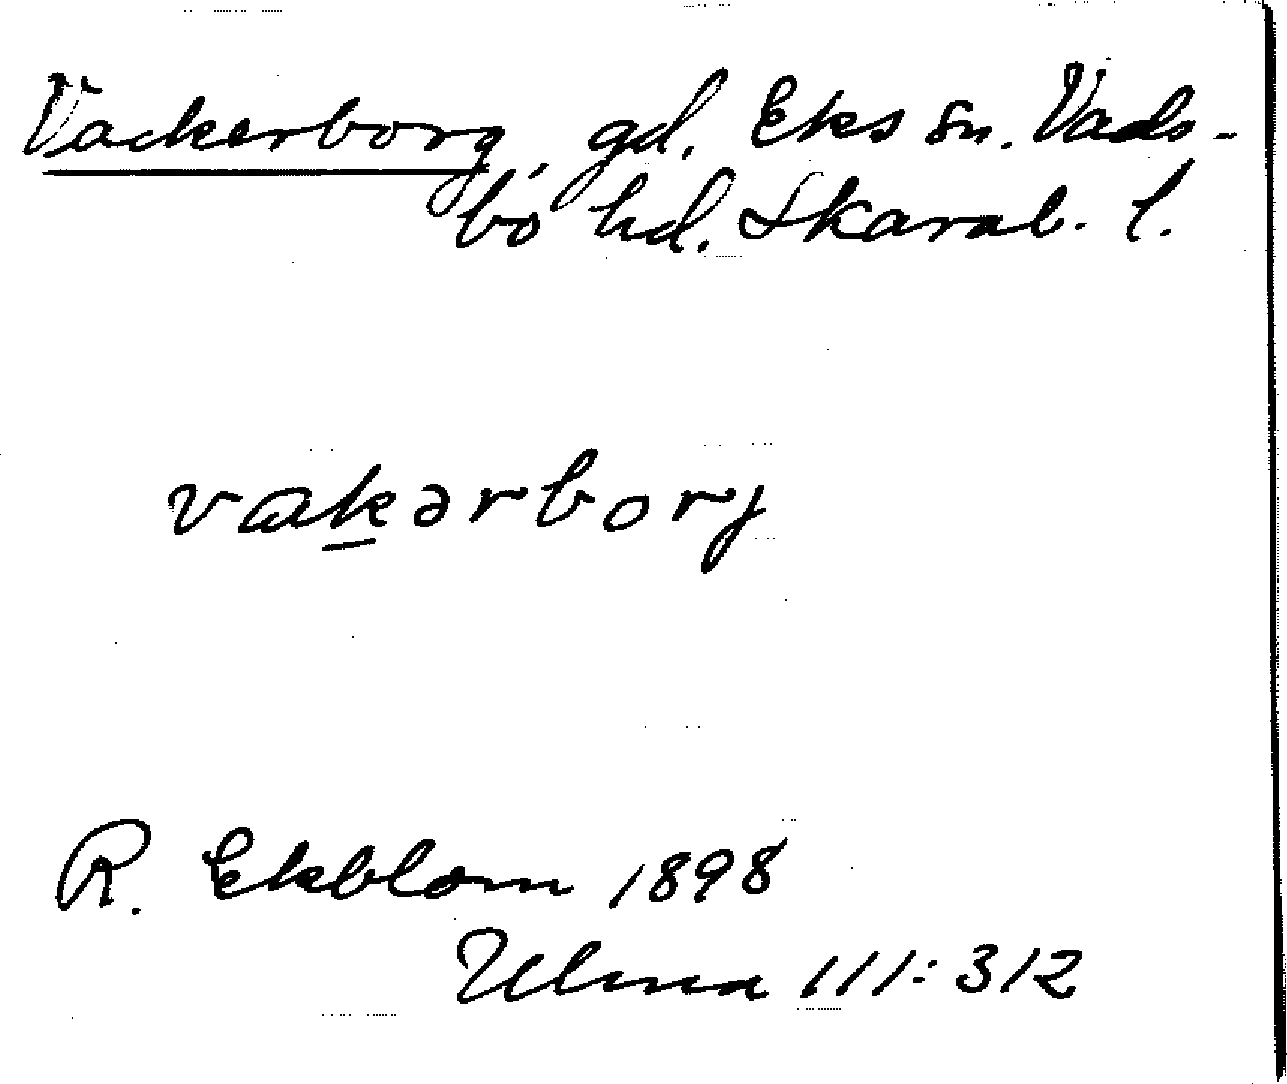 Vackerborg, gd. Eks sn. Vads-
bo hd. Skarab. l.
vakərborj
R. Ekblom 1898
Ulma 111:312